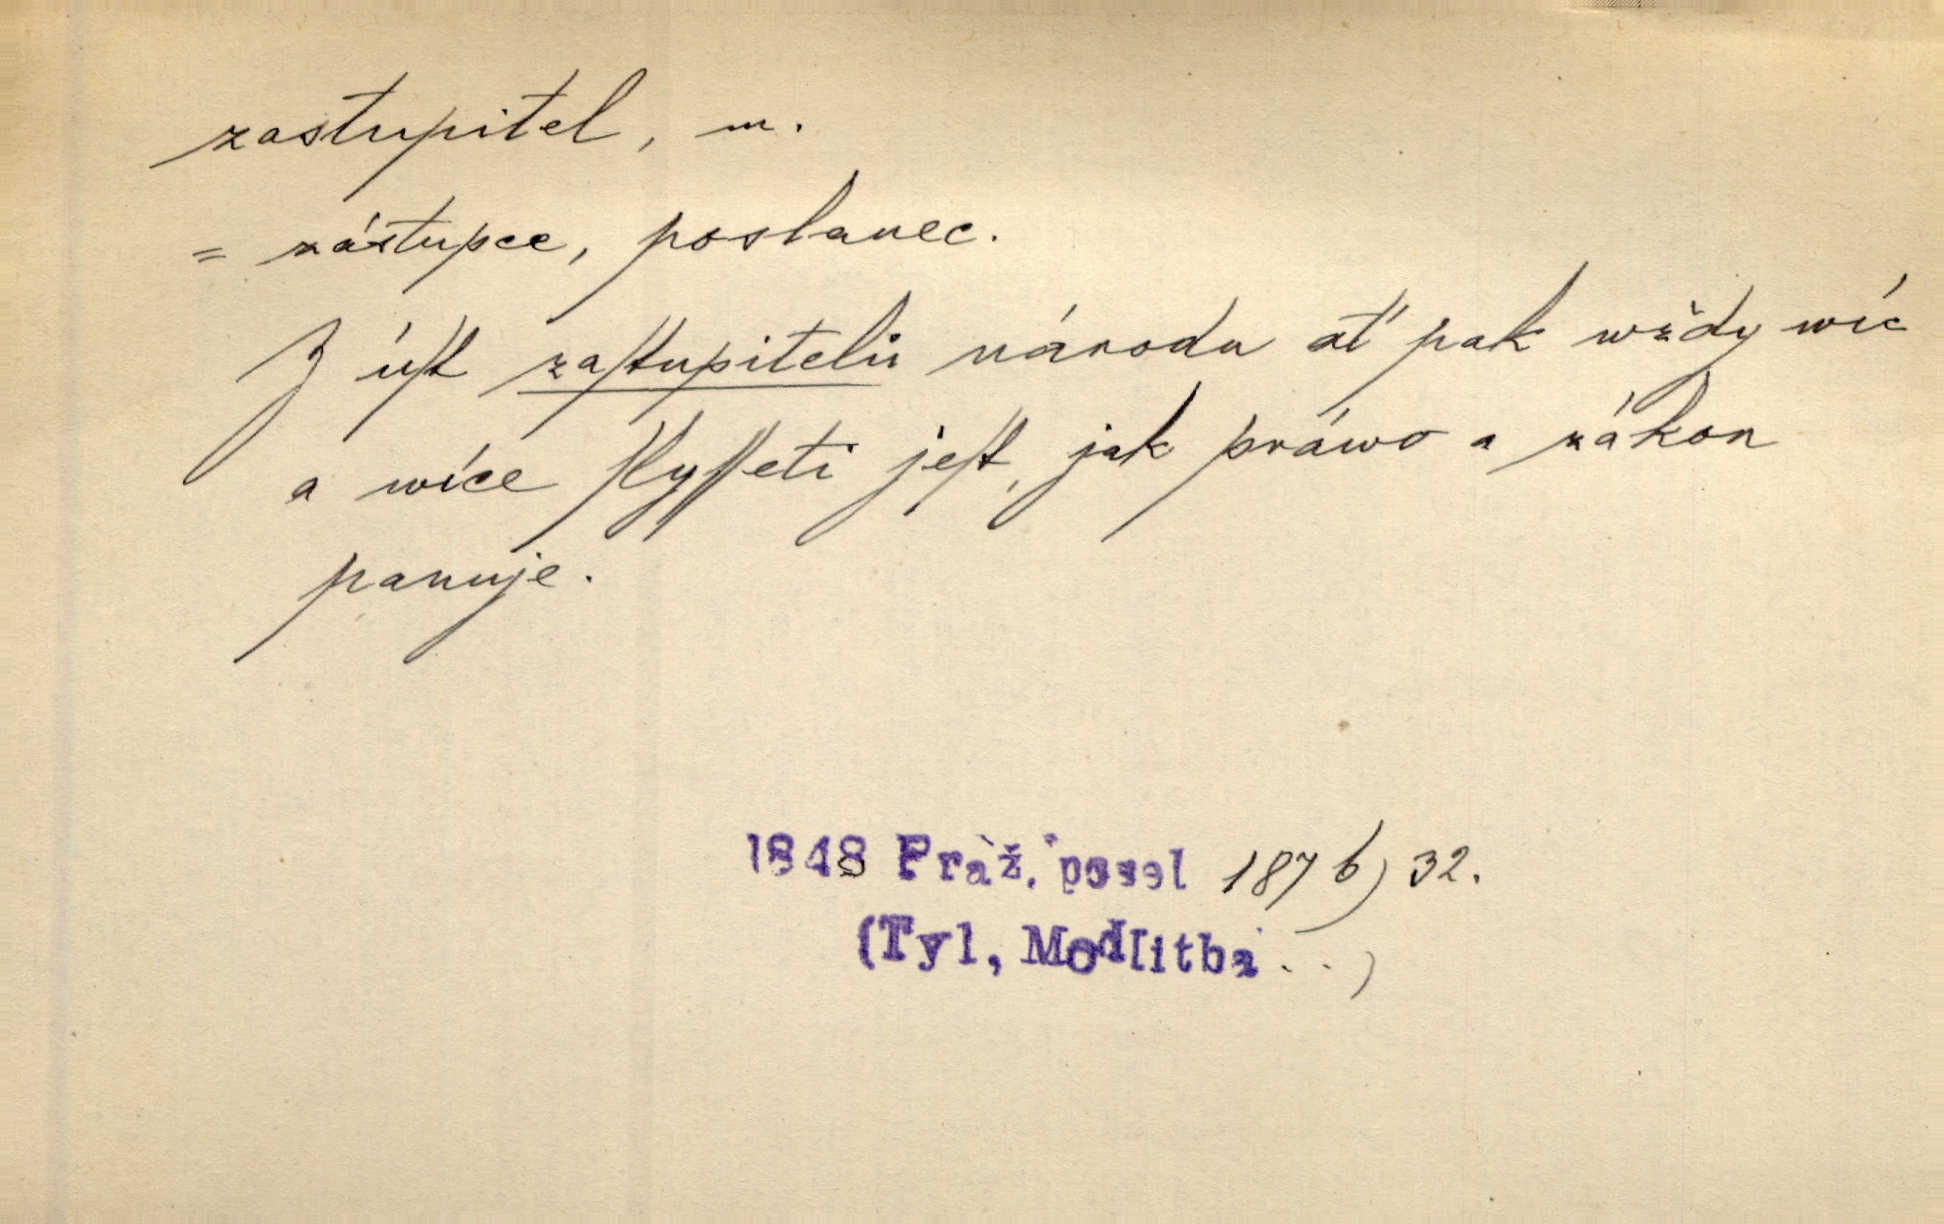 zastupitel, m.
= zástupce, poslanec.
Z úſt zaſtupitelů národu ať pak wždy wíc
a wíce ſlyſſeti jeſt, jak práwo a zákon
panuje.
1848 Praž. posel 187 b) 32.
(Tyl, Modlitba . . )